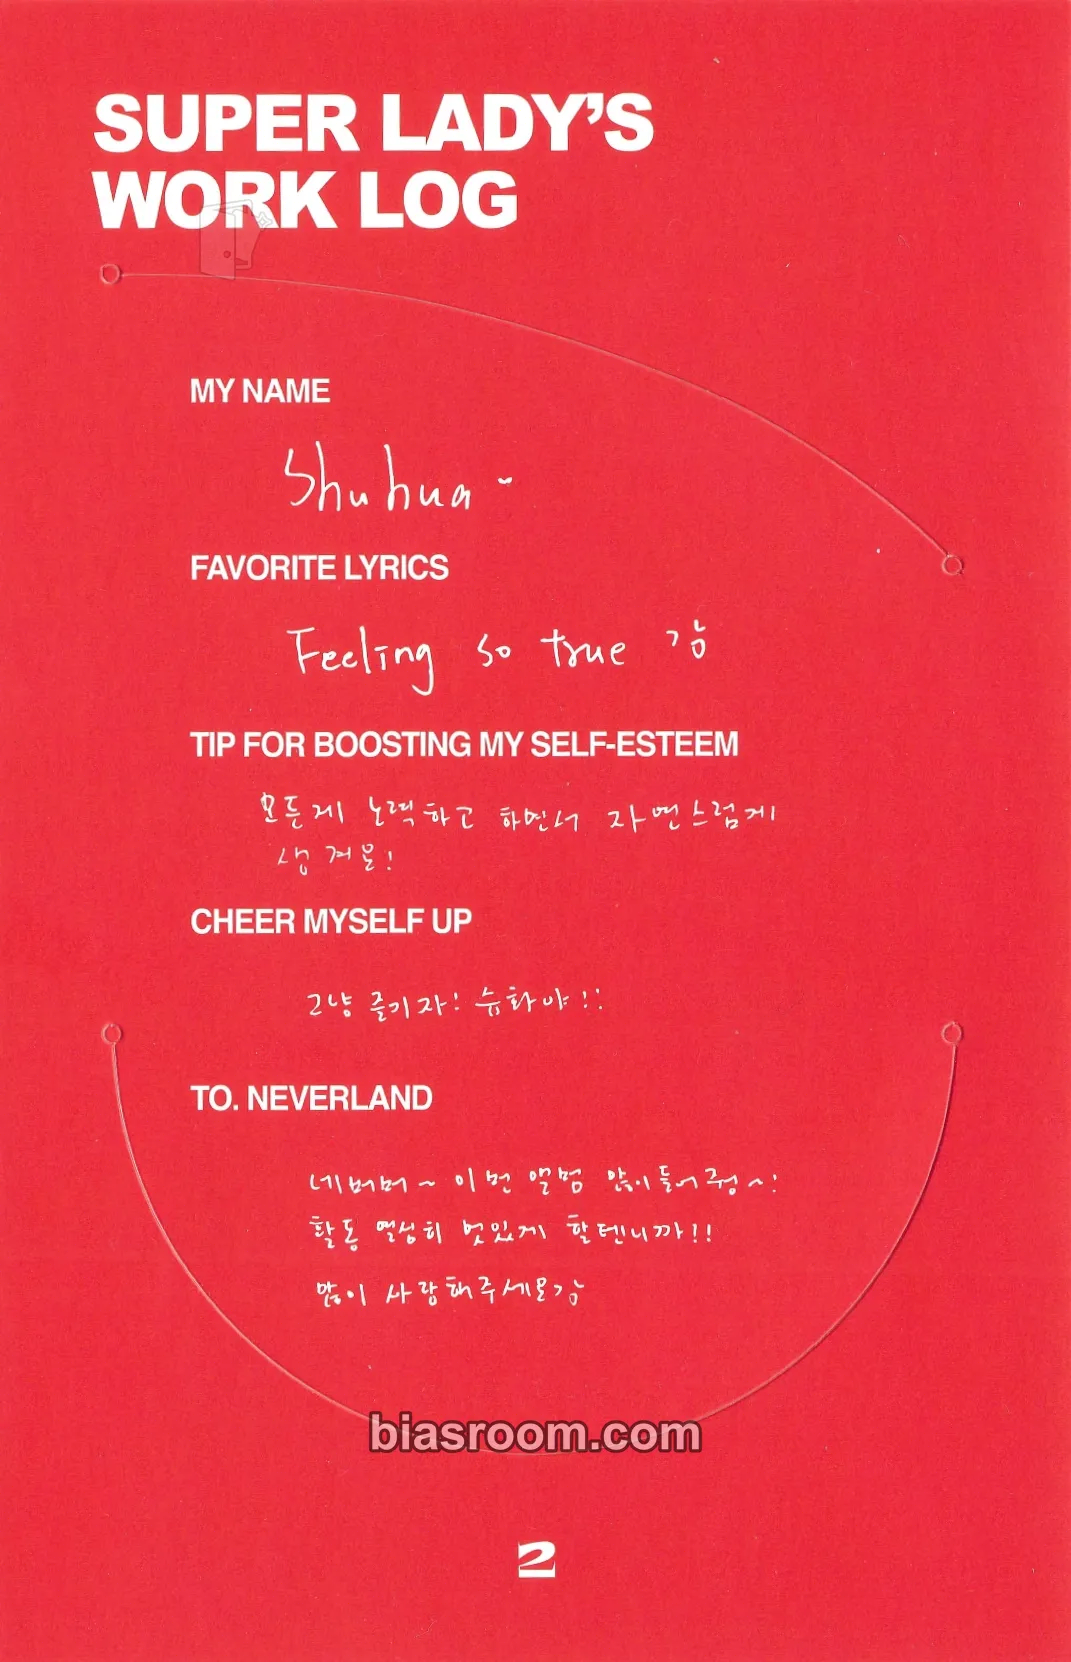 SUPER LADY'S
WORK LOG
MY NAME
Shuhua ~
FAVORITE LYRICS
Feeling so true 강
TIP FOR BOOSTING MY SELF-ESTEEM
모든게 노력하고 하면서 자연스럽게
생겨욤!
CHEER MYSELF UP
그냥 즐기자! 슈화야!!
TO. NEVERLAND
네버버~ 이번 앨범 많이들어줭~!
활동 열심히 멋있게 할텐니까!!
많이 사랑해주세요강
biasroom.com
2